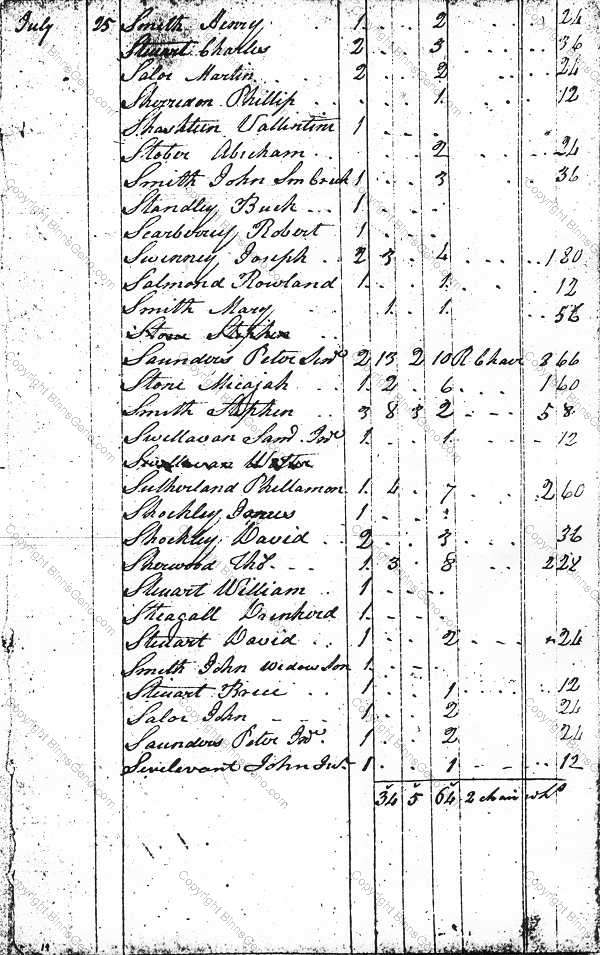 July 25 Smith Henry 1 . . 2 . . . 24
Stewart Charles 2 . . 3 . . . 36
Saloe Martin 2 . . 2 . . . 24
Sherredon Phillip . . . 1 . . . 12
Vallentine 1 . . .
Stober Abraham . . . 2 . . . 24
Smith John Sm Creek 1 . . 3 . . . 36
Standley Buck 1 . . .
Scarberrey Robert 1 . . .
Swinney Joseph 2 3 . 4 . . . 1 80
Salmond Rowland 1 . . 1 . . . 12
Smith Mary . 1 . 1 . . . 56
Stone Stephen
Saunders Peter Senr 2 13 2 10 R Chair 3 66
Stone Micajah 1 2 . 6 . . . 1 60
Smith Stephen 3 8 3 2 - - - 5 8
Swellavan Saml Jnr 1 . . 1 . . - 12
Sutherland Phillamon 1 4 . 7 . . . 2 60
Shockley James 1 . . .
Shockley David 2 . . 3 . . . 36
Sherwood Thos 1 3 . 8 . . . 2 28
Steuart William 1 . . .
Steagall 1 - - -
Steuart David 1 . . 2 - - - 24
Smith John Widow Son 1 . . -
Steuart Brice 1 . . 1 . . . 12
Saloe John 1 . . 2 . . . 24
Saunders Peter Jnr 1 . . 2 . . . 24
John Junr 1 . . 1 - - - 12
34 5 64 2 chair whls
Copyright BinnsGeno.com